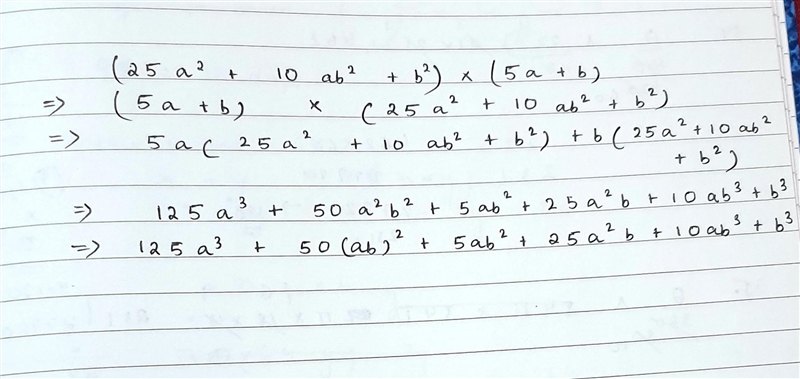 (25 a² + 10 ab² + b²) × (5a + b)
=> (5a + b) × (25 a² + 10 ab² + b²)
=> 5a ( 25a² + 10 ab² + b²) + b ( 25a² + 10 ab²
+ b²)
=> 125 a³ + 50 a²b² + 5ab² + 25a²b + 10ab³ + b³
=> 125 a³ + 50 (ab)² + 5ab² + 25a²b + 10ab³ + b³